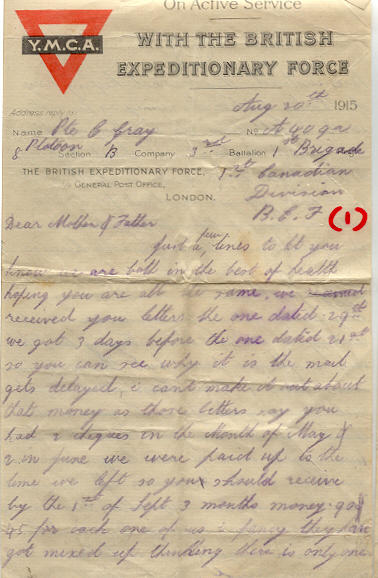 On Active Service
Y.M.C.A.
WITH THE BRITISH
EXPEDITIONARY FORCE
Aug 20th 1915
Address reply to:
Name Pte C Gray No. A 4092
8 Platoon Section B Company 3rd Battalion 1st Brigade
THE BRITISH EXPEDITIONARY FORCE, 1st Canadian
GENERAL POST OFFICE, Division
LONDON. B. E. F (1)
Dear Mother & Father
Just a few lines to let you
know we are both in the best of health
hoping you are all the same, we
received you letters the one dated 29th
we got 3 days before the one dated 21st
so you can see why it is the mail
gets delayed, i cant make it out about
that money as those letters say you
had 2 cheques in the Month of May &
2 in June we were paid up to the
time we left so you should receive
by the 1st of Sept 3 months money
45 for each one of us i fancy they have
got mixed up thinking there is only one